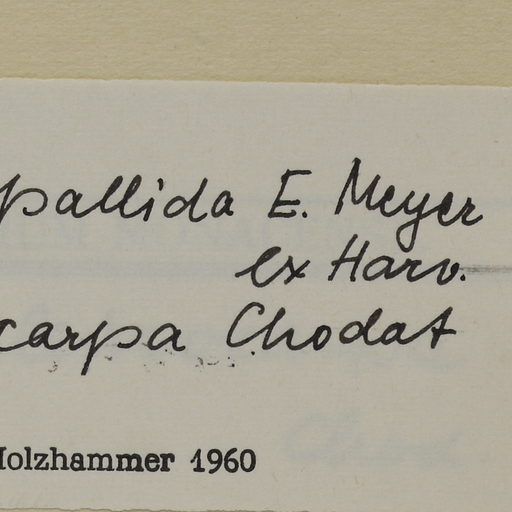 pallida E. Meyer
ex Harv.
carpa Chodat
Holzhammer 1960